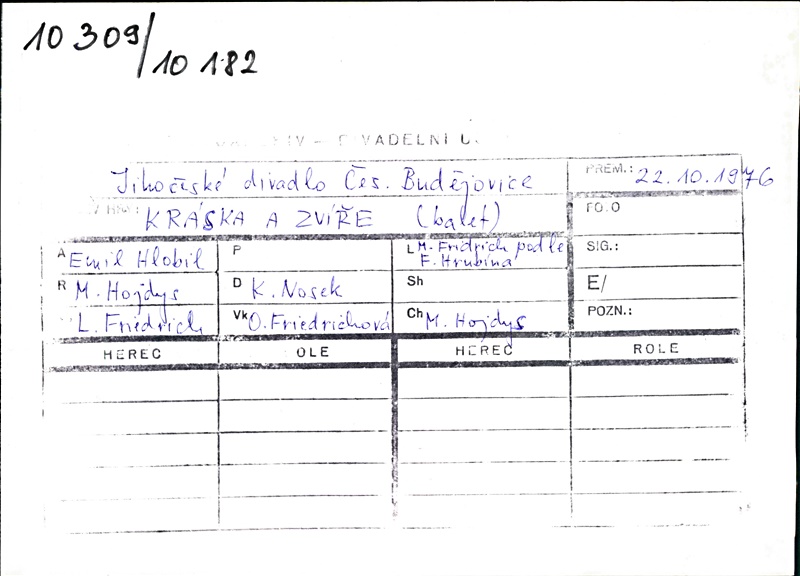 10 309/
10 182
IV – DIVADELNÍ
Jihočeské divadlo Čes. Budějovice
PREM.: 22.10.1976
KRÁSKA A ZVÍŘE (balet)
FOTO
A Emil Hlobil
P
L M. Fridrich podle
F. Hrubína
SIG.:
R M. Hojdys
D K. Nosek
Sh
E/
L. Friedrich
Vk O. Friedrichová
Ch M. Hojdys
POZN.:
HEREC
OLE
HEREC
ROLE